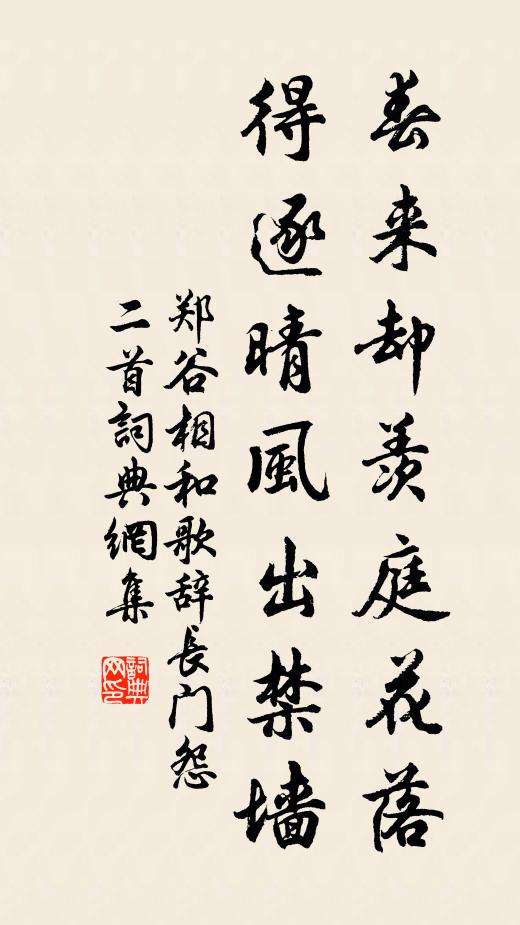 春来却羡庭花落
得逐晴風出禁墙
郑谷相和歌辞長门怨
二首詞典網集
詞典网印